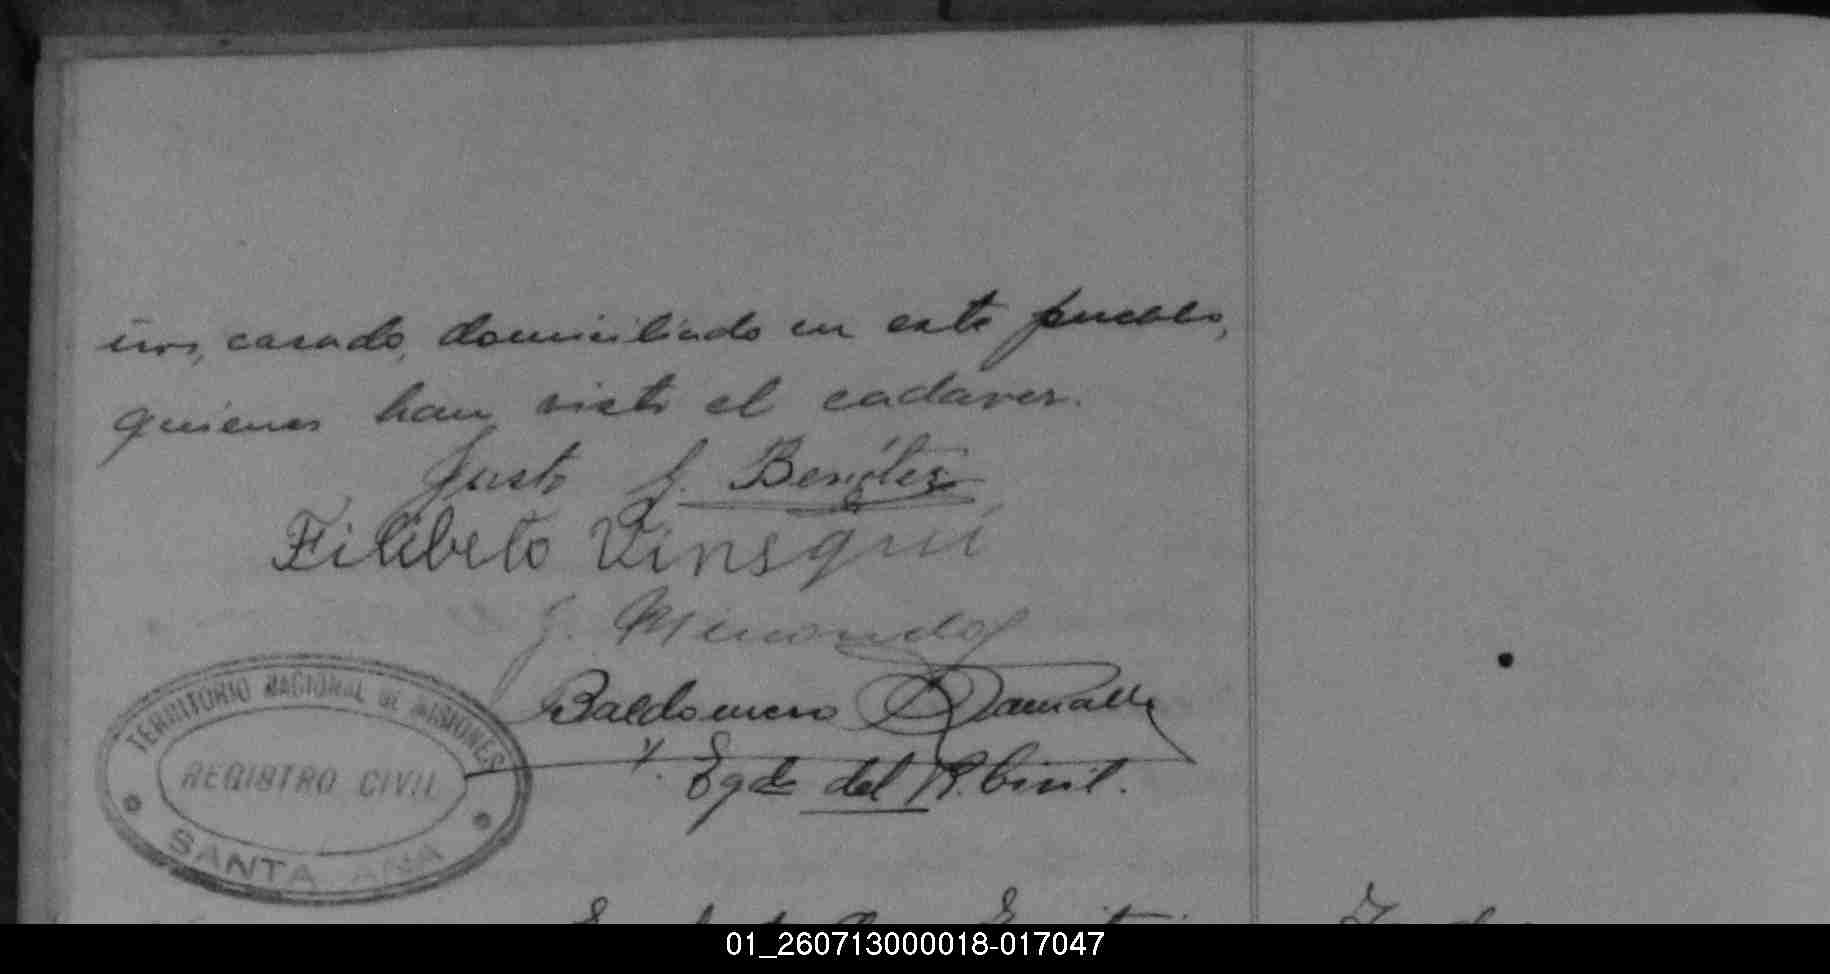 ños, casado, domiciliado en este pueblo,
quienes han visto el cadaver.
Justo J. Benitez
Filiberto Vinsqui
J.
Baldomero
Egdo del R. Civil.
TERRITORIO NACIONAL DE MISIONES
REGISTRO CIVIL
SANTA ANA
01_260713000018-017047